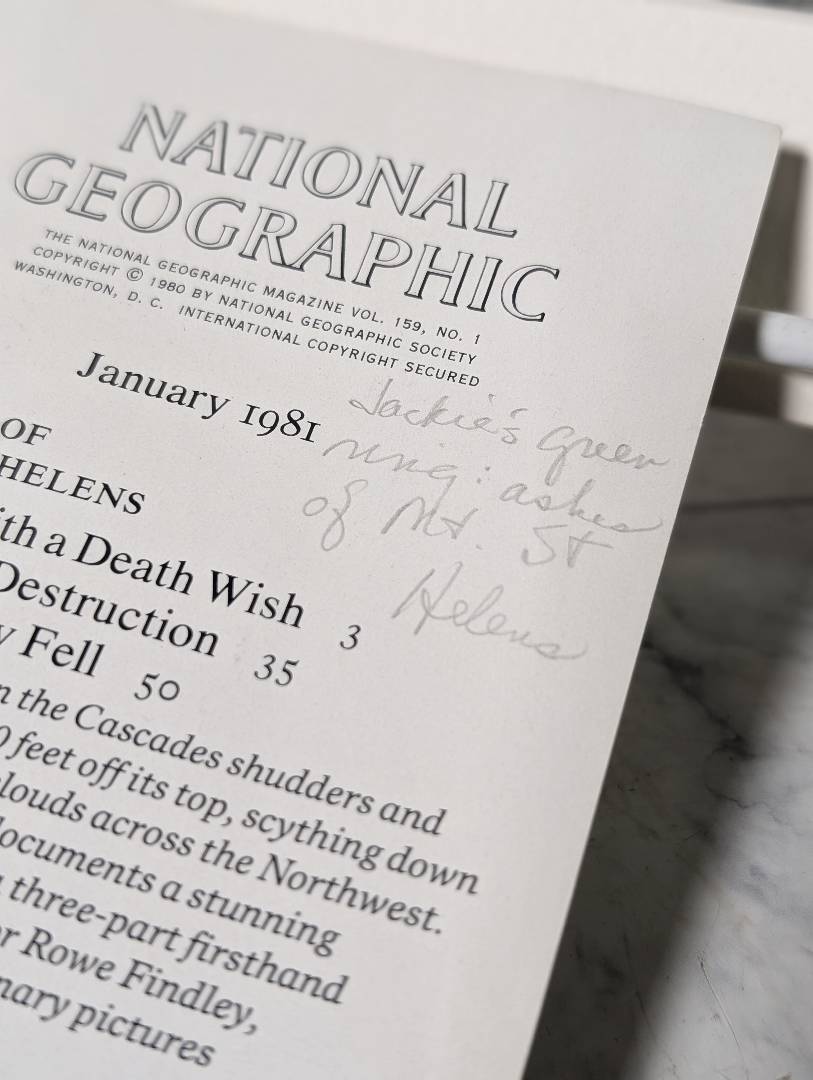 NATIONAL
GEOGRAPHIC
THE NATIONAL GEOGRAPHIC MAGAZINE VOL. 159, NO. 1
COPYRIGHT © 1980 BY NATIONAL GEOGRAPHIC SOCIETY
WASHINGTON, D. C. INTERNATIONAL COPYRIGHT SECURED
January 1981
Jackie's green
ring: ashes
of Mt. St
Helens
OF
HELENS
ith a Death Wish 3
Destruction 35
y Fell 50
n the Cascades shudders and
0 feet off its top, scything down
louds across the Northwest.
locuments a stunning
three-part firsthand
or Rowe Findley,
nary pictures